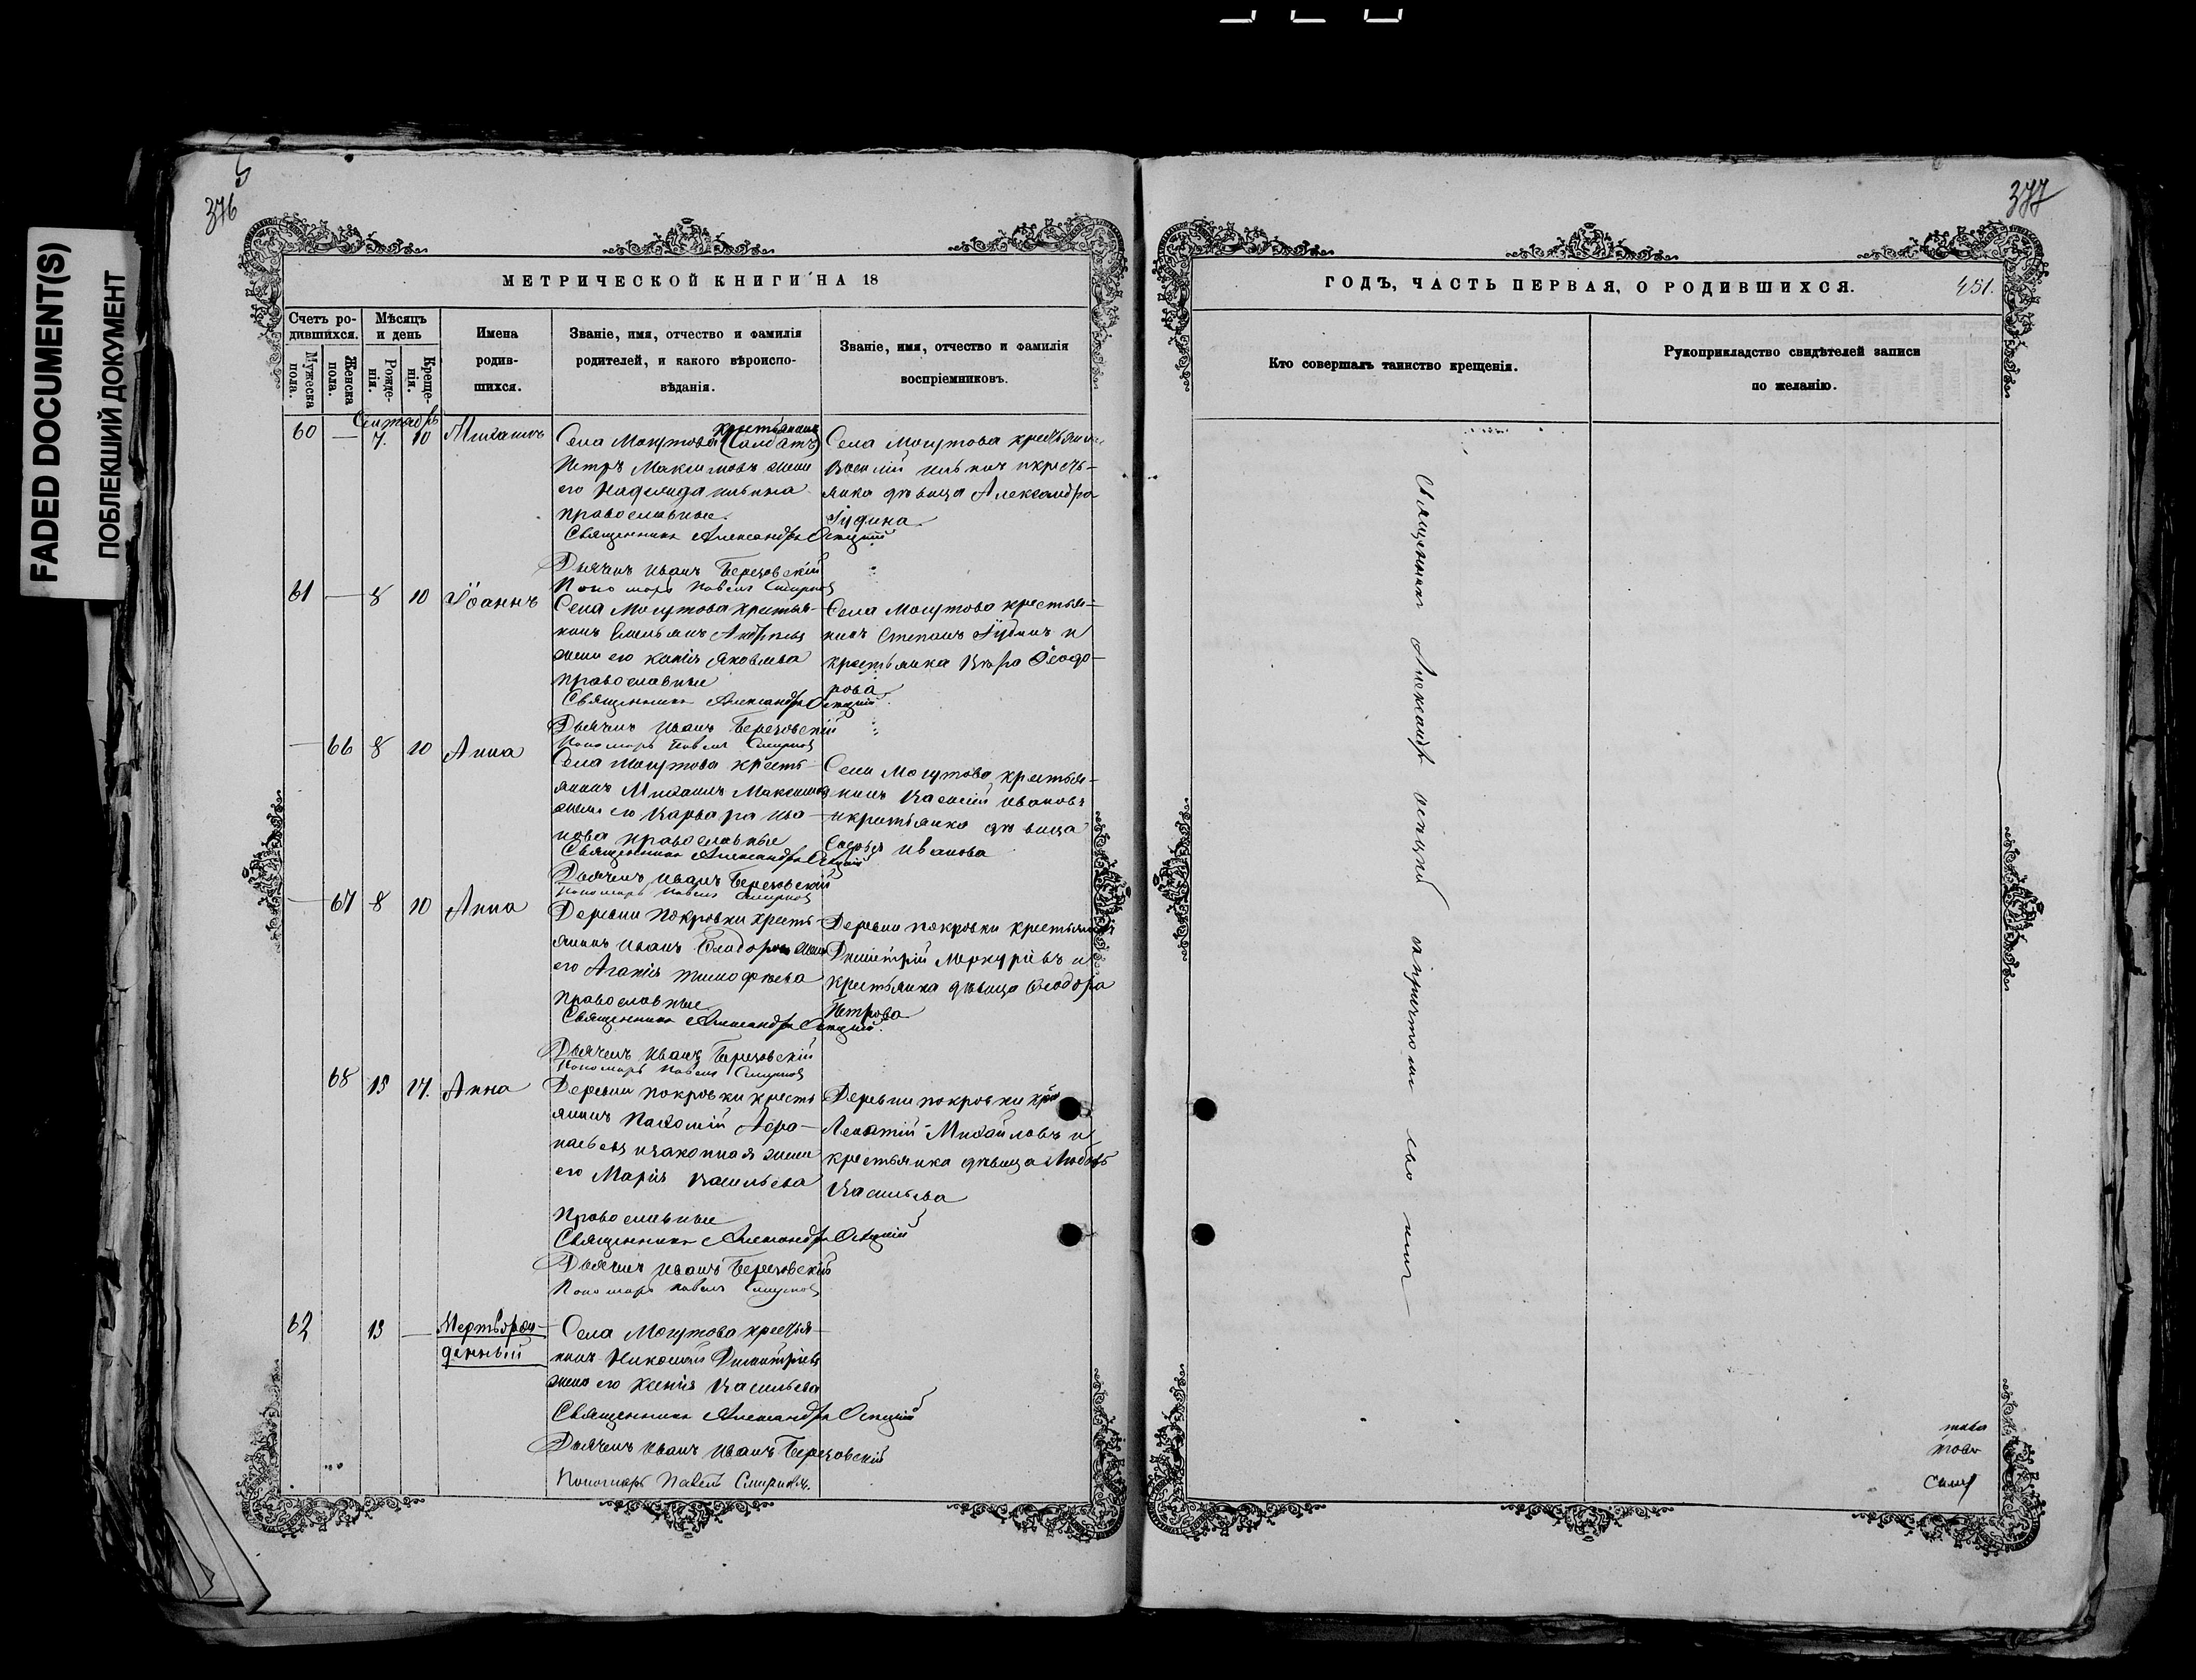 FADED DOCUMENT(S)
ПОБЛЕКШИЙ ДОКУМЕНТ
376
МЕТРИЧЕСКОЙ КНИГИ НА 18
Счетъ ро-
дившихся.
Мужеска
пола.
Женска
пола.
Мѣсяцъ
и день
Рожде-
нія.
Креще-
нія.
Имена
родив-
шихся.
Званіе, имя, отчество и фамилія
родителей, и какого вѣроиспо-
вѣданія.
Званіе, имя, отчество и фамилія
воспріемниковъ.
Сентябрь
60 — 7. 10 Михаилъ
крестьянинъ
Села Могутова (Солдатъ)
Петръ Максимовъ жена
его Надежда
православные
Священникъ Александръ Осецкій
Дьячекъ Иванъ Березовскій
Пономарь Павелъ Смирновъ
Села Могутова крестьянинъ
Василій и кресть-
янка дѣвица Александра
Іудина
61 — 8 10 Іоаннъ
Села Могутова крестья-
нинъ Емельянъ Андреевъ
жена его Яковлева
православные
Священникъ Александръ Осецкій
Дьячекъ Иванъ Березовскій
Пономарь Павелъ Смирновъ
Села Могутова крестья-
нинъ Степанъ Іудинъ и
крестьянка Ѳеодо-
рова
— 66 8 10 Анна
Села Могутова кресть-
янинъ Михаилъ Максимовъ
жена его Варвара Ива-
нова православные
Священникъ Александръ Осецкій
Дьячекъ Иванъ Березовскій
Пономарь Павелъ Смирновъ
Села Могутова крестья-
нинъ Василій Ивановъ
и крестьянка дѣвица
Иванова
— 67 8 10 Анна
Деревни Покровки кресть-
янинъ Иванъ Ѳеодоровъ жена
его Агапія Тимофѣева
православные
Священникъ Александръ Осецкій
Дьячекъ Иванъ Березовскій
Пономарь Павелъ Смирновъ
Деревни Покровки крестьянинъ
Димитрій Меркурьевъ и
крестьянка дѣвица Ѳеодора
Петрова
68 13 14. Анна
Деревни Покровки кресть
янинъ Пахомій Аѳа-
насьевъ и законная жена
его Марія Васильева
Православные
Священникъ Александръ Осецкій
Дьячекъ Иванъ Березовскій
Пономарь Павелъ Смирновъ
Деревни Покровки
Михайловъ и
крестьянка дѣвица Любовь
Васильева
62 13 — Мертворож-
денный
Села Могутова крестья-
нинъ Николай Димитріевъ
жена его Ксенія Васильева
Священникъ Александръ Осецкій
Дьячекъ Иванъ Иванъ Березовскій
Пономарь Павелъ Смирновъ.
377
ГОДЪ, ЧАСТЬ ПЕРВАЯ, О РОДИВШИХСЯ.
451.
Кто совершалъ таинство крещенія.
Рукоприкладство свидѣтелей записи
по желанію.
Священникъ Александръ Осецкій съ причтомъ